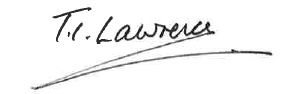 T.E. Lawrence